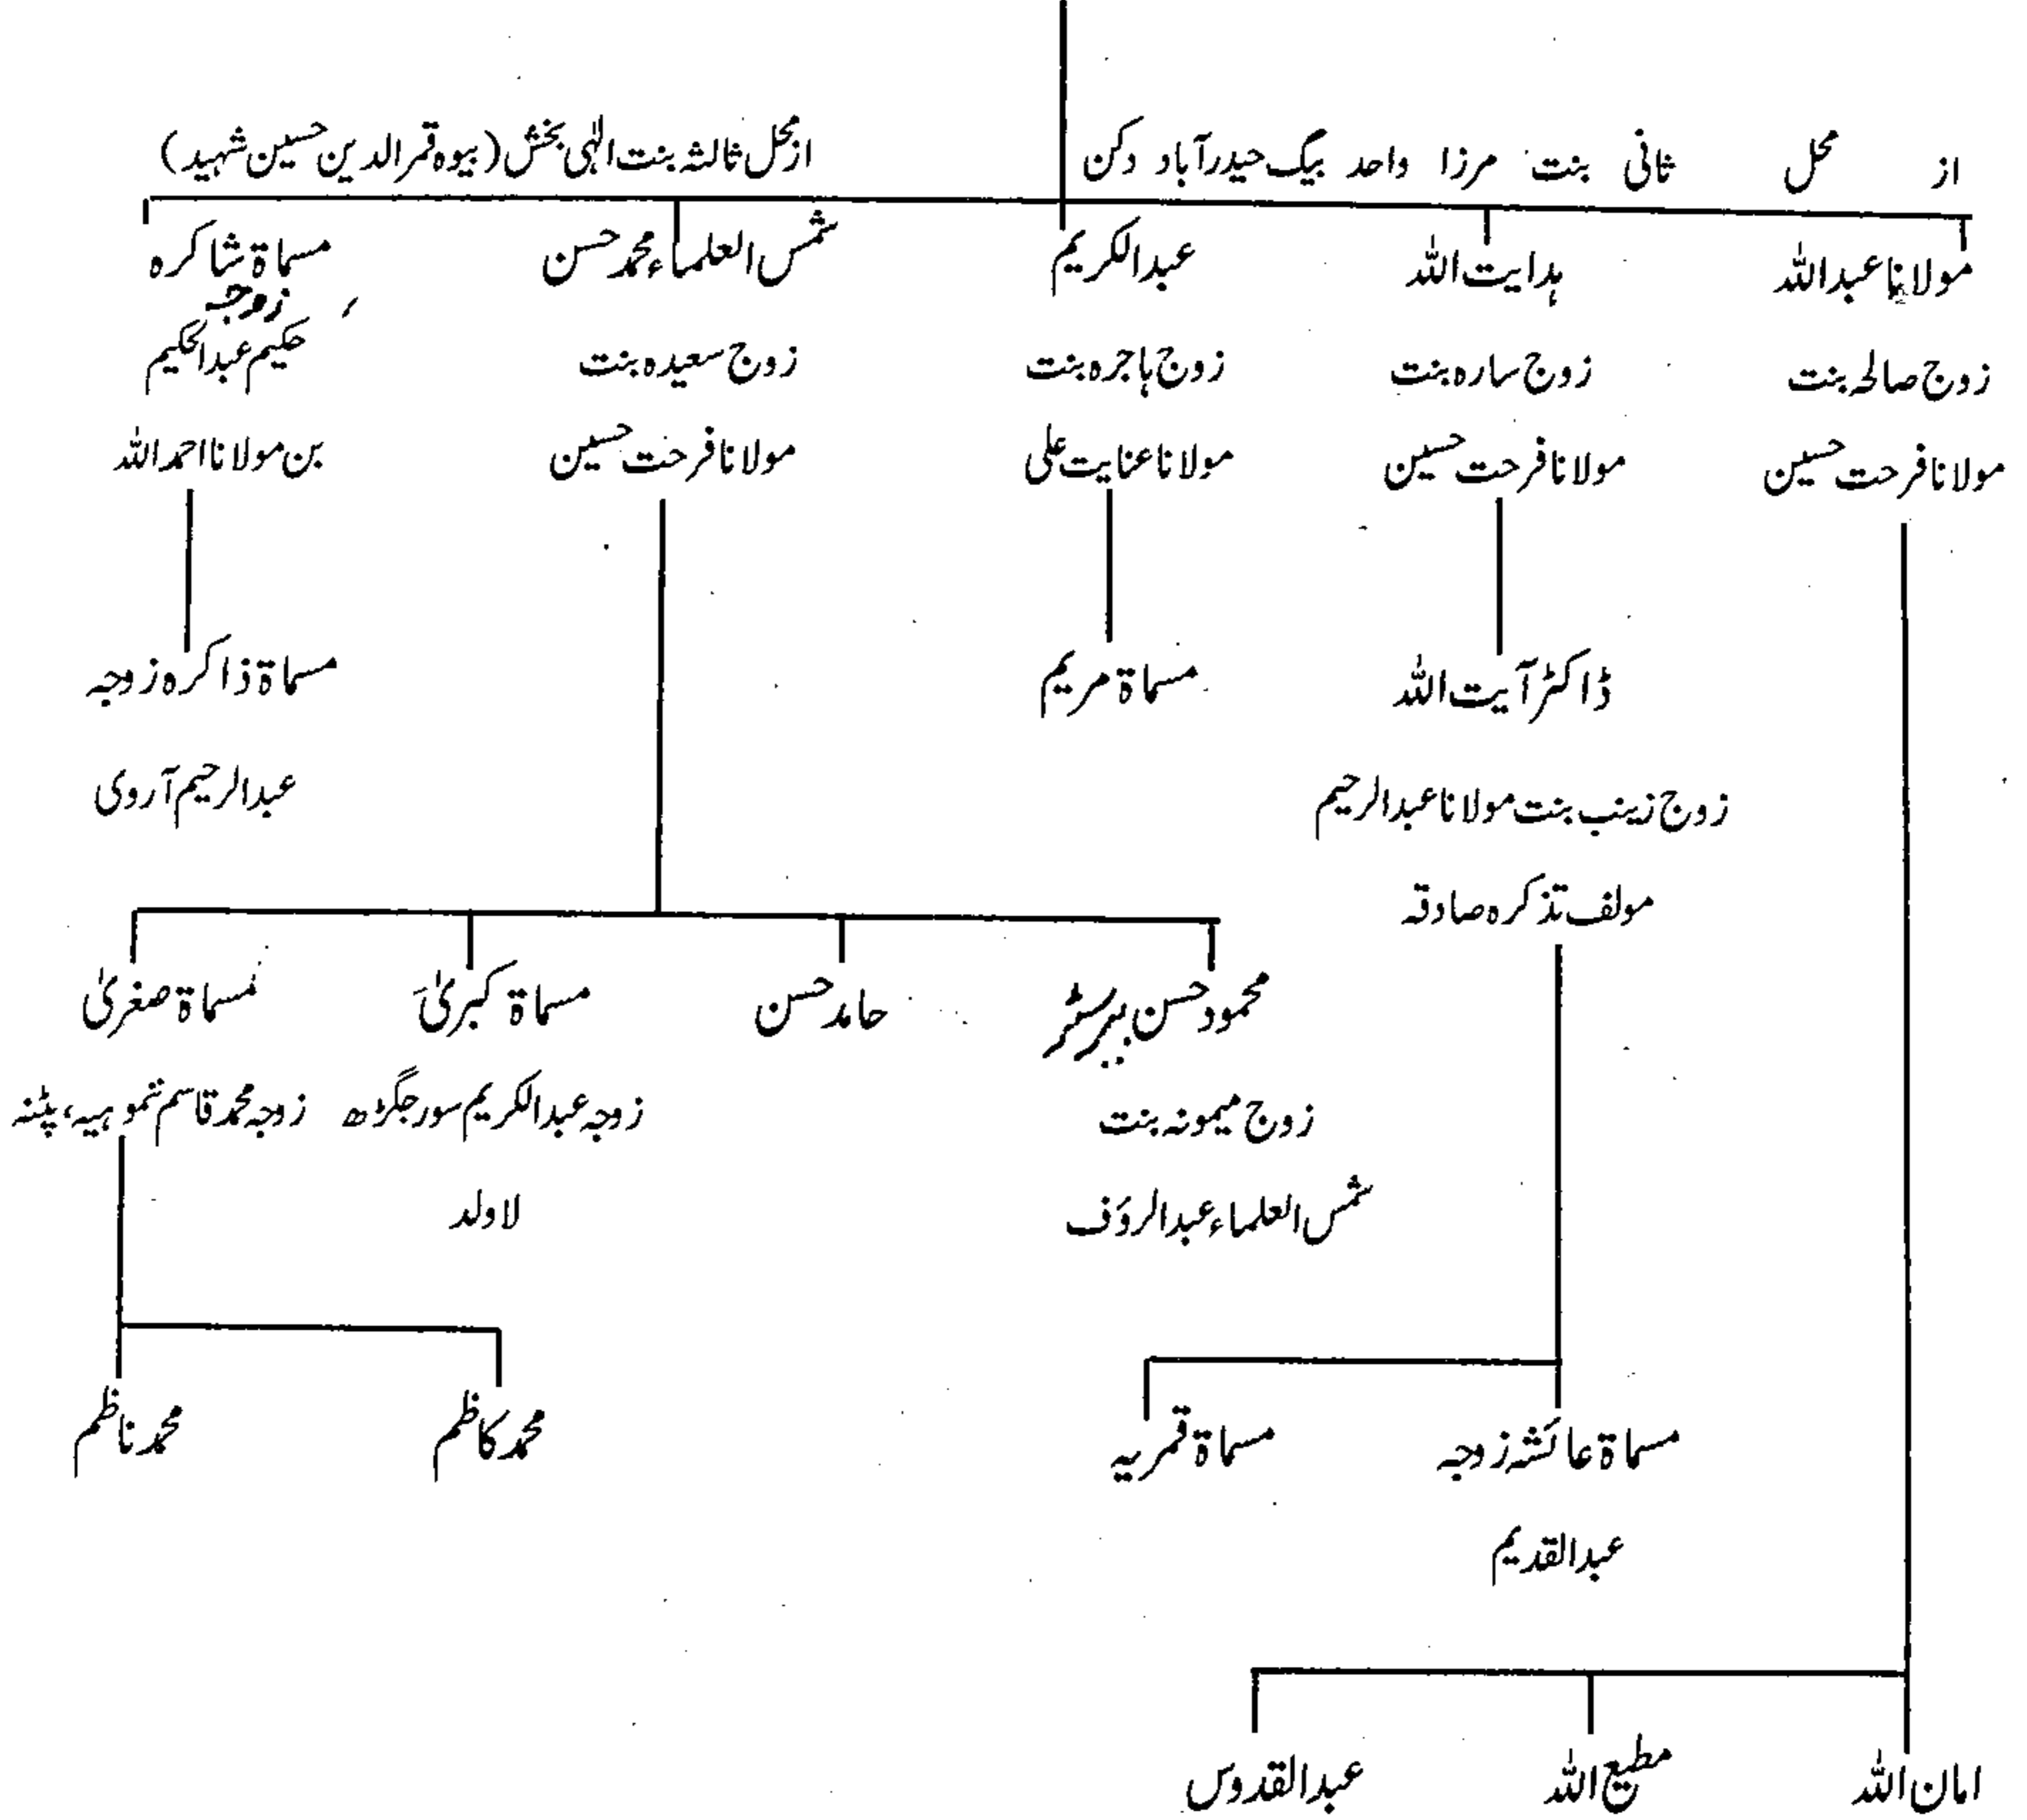 از محل ثانی بنت مرزا واحد بیگ حیدرآباد دکن
از محل ثالثہ بنت الٰہی بخش (بیوہ قمر الدین حسین شہید)
مولانا عبداللہ
زوج صالحہ بنت
مولانا فرحت حسین
ہدایت اللہ
زوج سارہ بنت
مولانا فرحت حسین
عبدالکریم
زوج ہاجرہ بنت
مولانا عنایت علی
شمس العلماء محمد حسن
زوج سعیدہ بنت
مولانا فرحت حسین
مسماۃ شاکرہ
زوجہ
حکیم عبدالحکیم
بن مولانا احمد اللہ
ڈاکٹر آیت اللہ
زوج زینب بنت مولانا عبدالرحیم
مولف تذکرہ صادقہ
مسماۃ مریم
مسماۃ ذاکرہ زوجہ
عبدالرحیم آروی
محمود حسن بیرسٹر
زوج میمونہ بنت
شمس العلماء عبدالرؤف
حامد حسن
مسماۃ کبریٰ
زوجہ عبدالکریم سورجگڑھ
لاولد
مسماۃ صغریٰ
زوجہ محمد قاسم نموہیہ، پٹنہ
مسماۃ عائشہ زوجہ
عبدالقدیم
مسماۃ قمریہ
محمد کاظم
محمد ناظم
امان اللہ
مطیع اللہ
عبدالقدوس